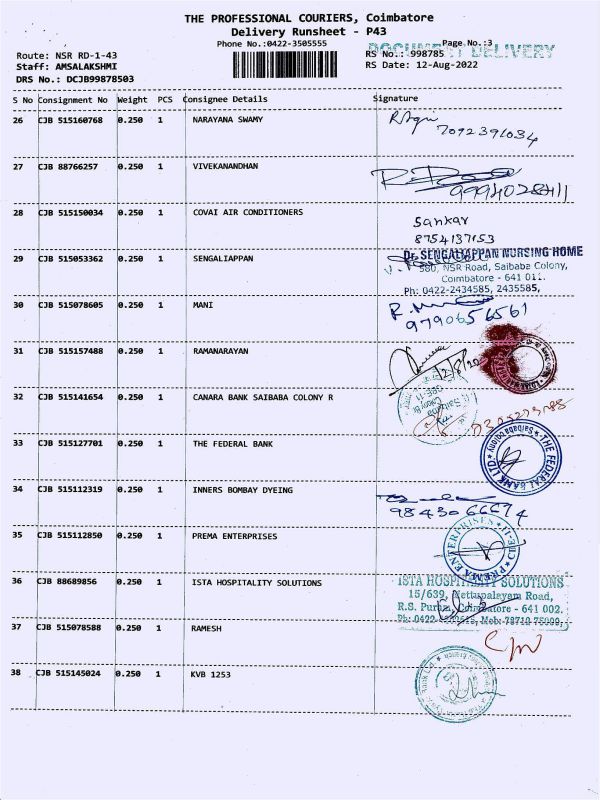 THE PROFESSIONAL COURIERS, Coimbatore
Delivery Runsheet - P43
Phone No.:0422-3505555
Page No.:3
DOCUMENT DELIVERY
Route: NSR RD-1-43
RS No.: 998785
Staff: AMSALAKSHMI
RS Date: 12-Aug-2022
DRS No.: DCJB99878503
S No Consignment No Weight PCS Consignee Details Signature
26 CJB 515160768 0.250 1 NARAYANA SWAMY
7092391034
27 CJB 88766257 0.250 1 VIVEKANANDHAN
9994028411
28 CJB 515150034 0.250 1 COVAI AIR CONDITIONERS
Sankar
8754137153
29 CJB 515053362 0.250 1 SENGALIAPPAN
Dr. SENGALIAPPAN NURSING HOME
580, NSR Road, Saibaba Colony,
Coimbatore - 641 011.
Ph: 0422-2434585, 2435585,
30 CJB 515078605 0.250 1 MANI
9790656561
31 CJB 515157488 0.250 1 RAMANARAYAN
32 CJB 515141654 0.250 1 CANARA BANK SAIBABA COLONY R
33 CJB 515127701 0.250 1 THE FEDERAL BANK
THE FEDERAL BANK LTD.
Saibaba Colony
34 CJB 515112319 0.250 1 INNERS BOMBAY DYEING
35 CJB 515112850 0.250 1 PREMA ENTERPRISES
PREMA ENTERPRISES CBE-11
36 CJB 88689856 0.250 1 ISTA HOSPITALITY SOLUTIONS
ISTA HOSPITALITY SOLUTIONS
15/639, Mettupalayam Road,
R.S. Puram, Coimbatore - 641 002.
37 CJB 515078588 0.250 1 RAMESH
38 CJB 515145024 0.250 1 KVB 1253